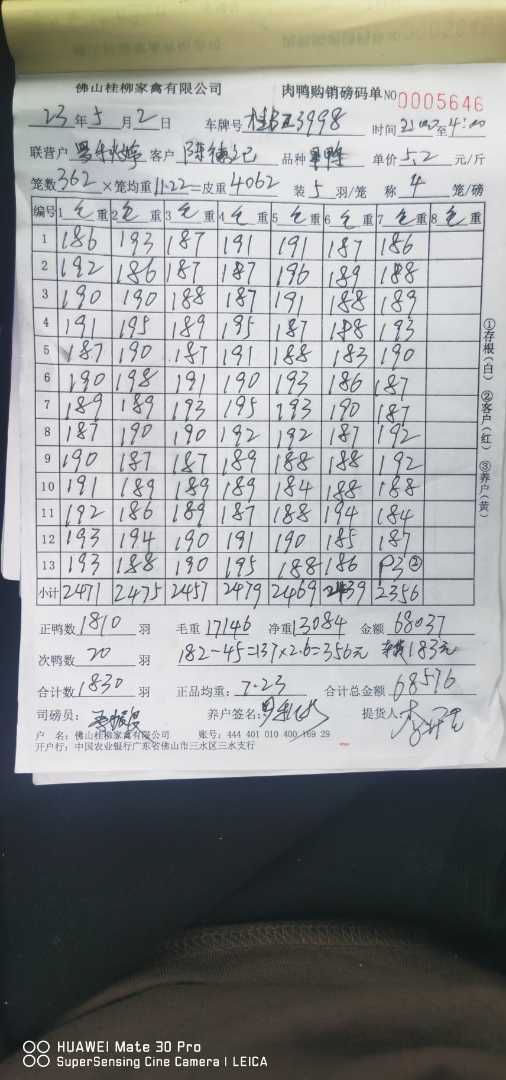 佛山桂柳家禽有限公司 肉鸭购销磅码单 NO 0005646
23年5月2日 车牌号 3998 时间 至4:00
联营户 客户 品种 单价5.2元/斤
笼数362×笼均重11.22=皮重4062 装5羽/笼 称4笼/磅
编号 1 毛重 2 毛重 3 毛重 4 毛重 5 毛重 6 毛重 7 毛重 8 毛重
1 186 193 187 191 191 187 186
2 192 186 187 187 196 189 188
3 190 190 188 187 191 188 189
4 191 195 189 195 187 188 193
5 187 190 187 191 188 183 190
6 190 198 191 190 193 186 187
7 189 189 193 195 193 190 187
8 187 190 190 192 192 187 192
9 190 187 187 189 188 188 192
10 191 189 189 189 184 188 188
11 192 186 189 187 188 194 184
12 193 194 190 191 190 185 187
13 193 188 190 195 188 186 93②
小计 2471 2475 2457 2479 2469 2439 2356
①存根(白) ②客户(红) ③养户(黄)
正鸭数1810羽 毛重17146 净重13084 金额68037
次鸭数20羽 182-45=137×2.6=356元 183元
合计数1830羽 正品均重:7.23 合计总金额68576
司磅员: 养户签名: 提货人
户 名:佛山桂柳家禽有限公司 账号:444 401 010 400 169 29
开户行:中国农业银行广东省佛山市三水区三水支行
HUAWEI Mate 30 Pro
SuperSensing Cine Camera | LEICA